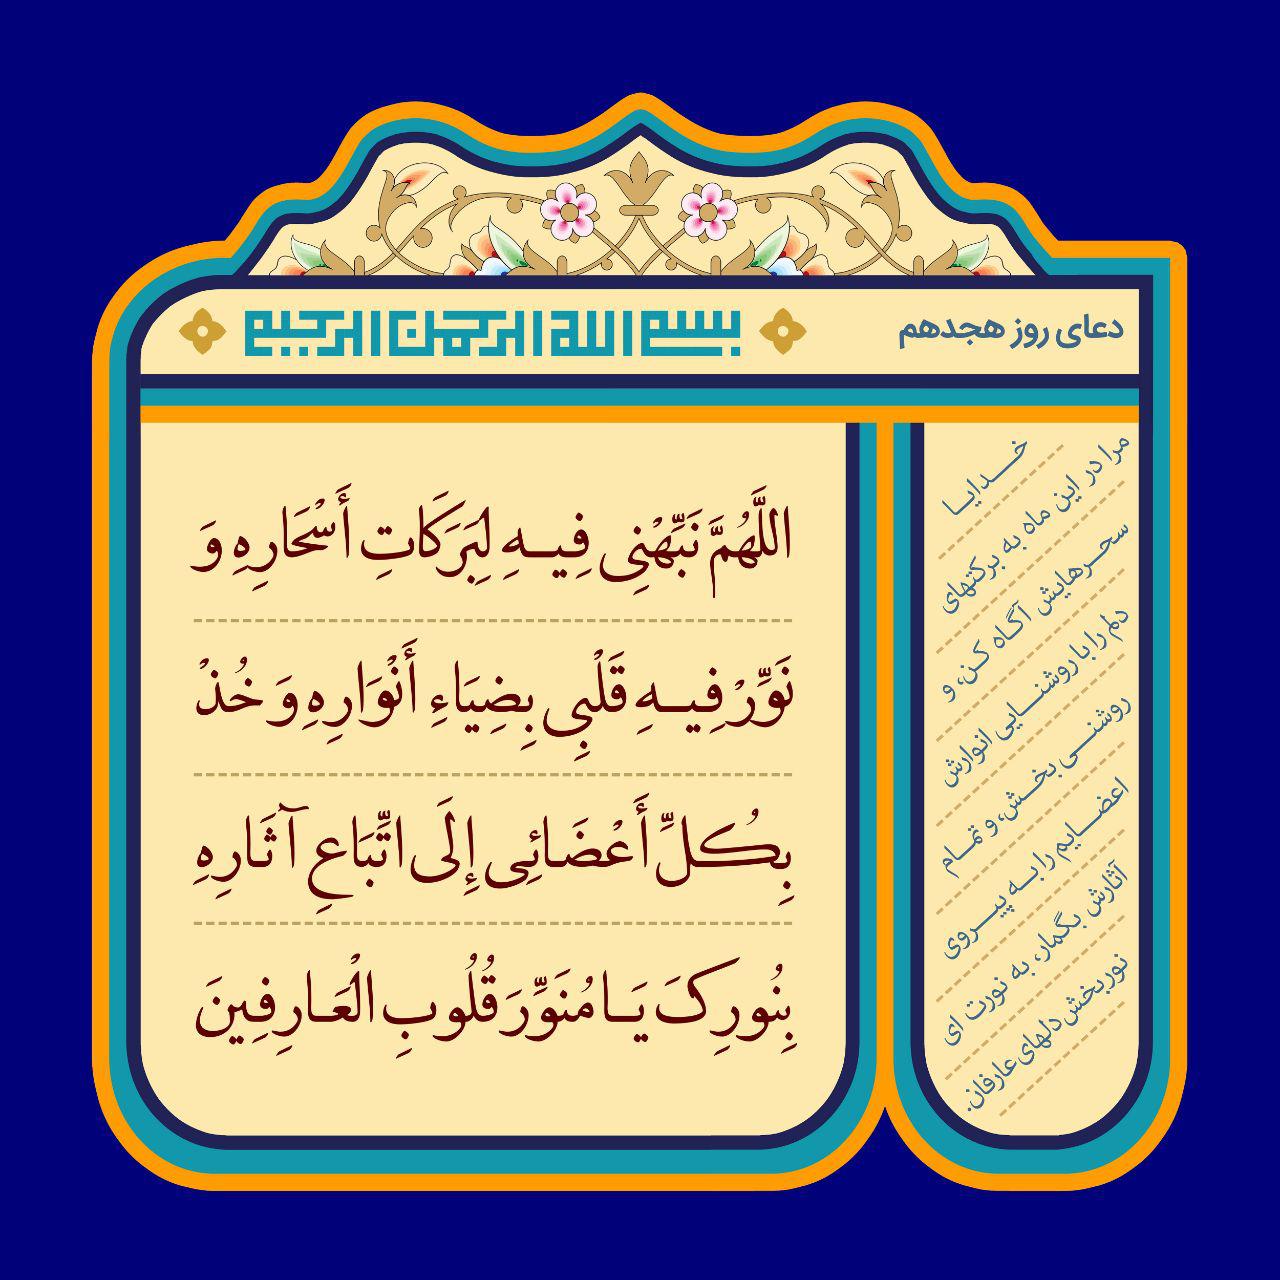 دعای روز هجدهم
بسم الله الرحمن الرحیم
اللَّهُمَّ نَبِّهْنِی فِیـهِ لِبَرَکَاتِ أَسْحَارِهِ وَ
نَوِّرْ فِیـهِ قَلْبِی بِضِیَاءِ أَنْوَارِهِ وَ خُذْ
بِکُلِّ أَعْضَائِی إِلَی اتِّبَاعِ آثَارِهِ
بِنُورِکَ یَـا مُنَوِّرَ قُلُوبِ الْعَـارِفِینَ
خـــدایـا
مرا در این ماه به برکتهای
سحـرهایش آگـاه کـن، و
دلم را با روشنـــایی انوارش
روشنـــی بخــش، و تمـام
اعضــایم را بــه پیــروی
آثارش بگمار، به نورت ای
نوربخش دلهای عارفان.